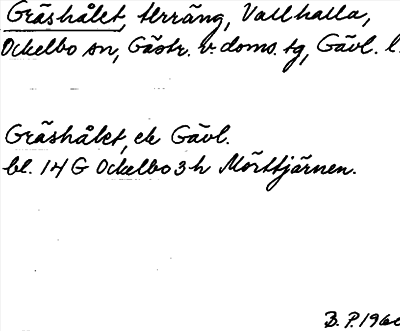 Gräshålet, terräng, Vallhalla,
Ockelbo sn, Gästr. v. doms. tg, Gävl. l.
Gräshålet, ek Gävl.
bl. 14 G Ockelbo 3 h Mörttjärnen.
B. P. 196